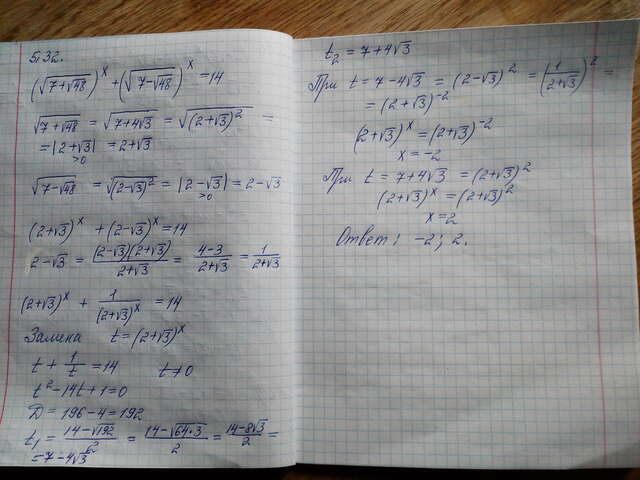 5.32.
(√(7+√48))^x + (√(7-√48))^x = 14
√(7+√48) = √(7+4√3) = √((2+√3)^2) =
= |2+√3| = 2+√3
>0
√(7-√48) = √((2-√3)^2) = |2-√3| = 2-√3
>0
(2+√3)^x + (2-√3)^x = 14
2-√3 = (2-√3)(2+√3)/(2+√3) = (4-3)/(2+√3) = 1/(2+√3)
(2+√3)^x + 1/(2+√3)^x = 14
Замена t = (2+√3)^x
t + 1/t = 14 t≠0
t^2-14t+1=0
D = 196-4 = 192
t_1 = (14-√192)/2 = (14-√(64·3))/2 = (14-8√3)/2 =
= 7-4√3
t_2 = 7+4√3
При t = 7-4√3 = (2-√3)^2 = (1/(2+√3))^2 =
= (2+√3)^-2
(2+√3)^x = (2+√3)^-2
x = -2
При t = 7+4√3 = (2+√3)^2
(2+√3)^x = (2+√3)^2
x = 2
Ответ: -2; 2.